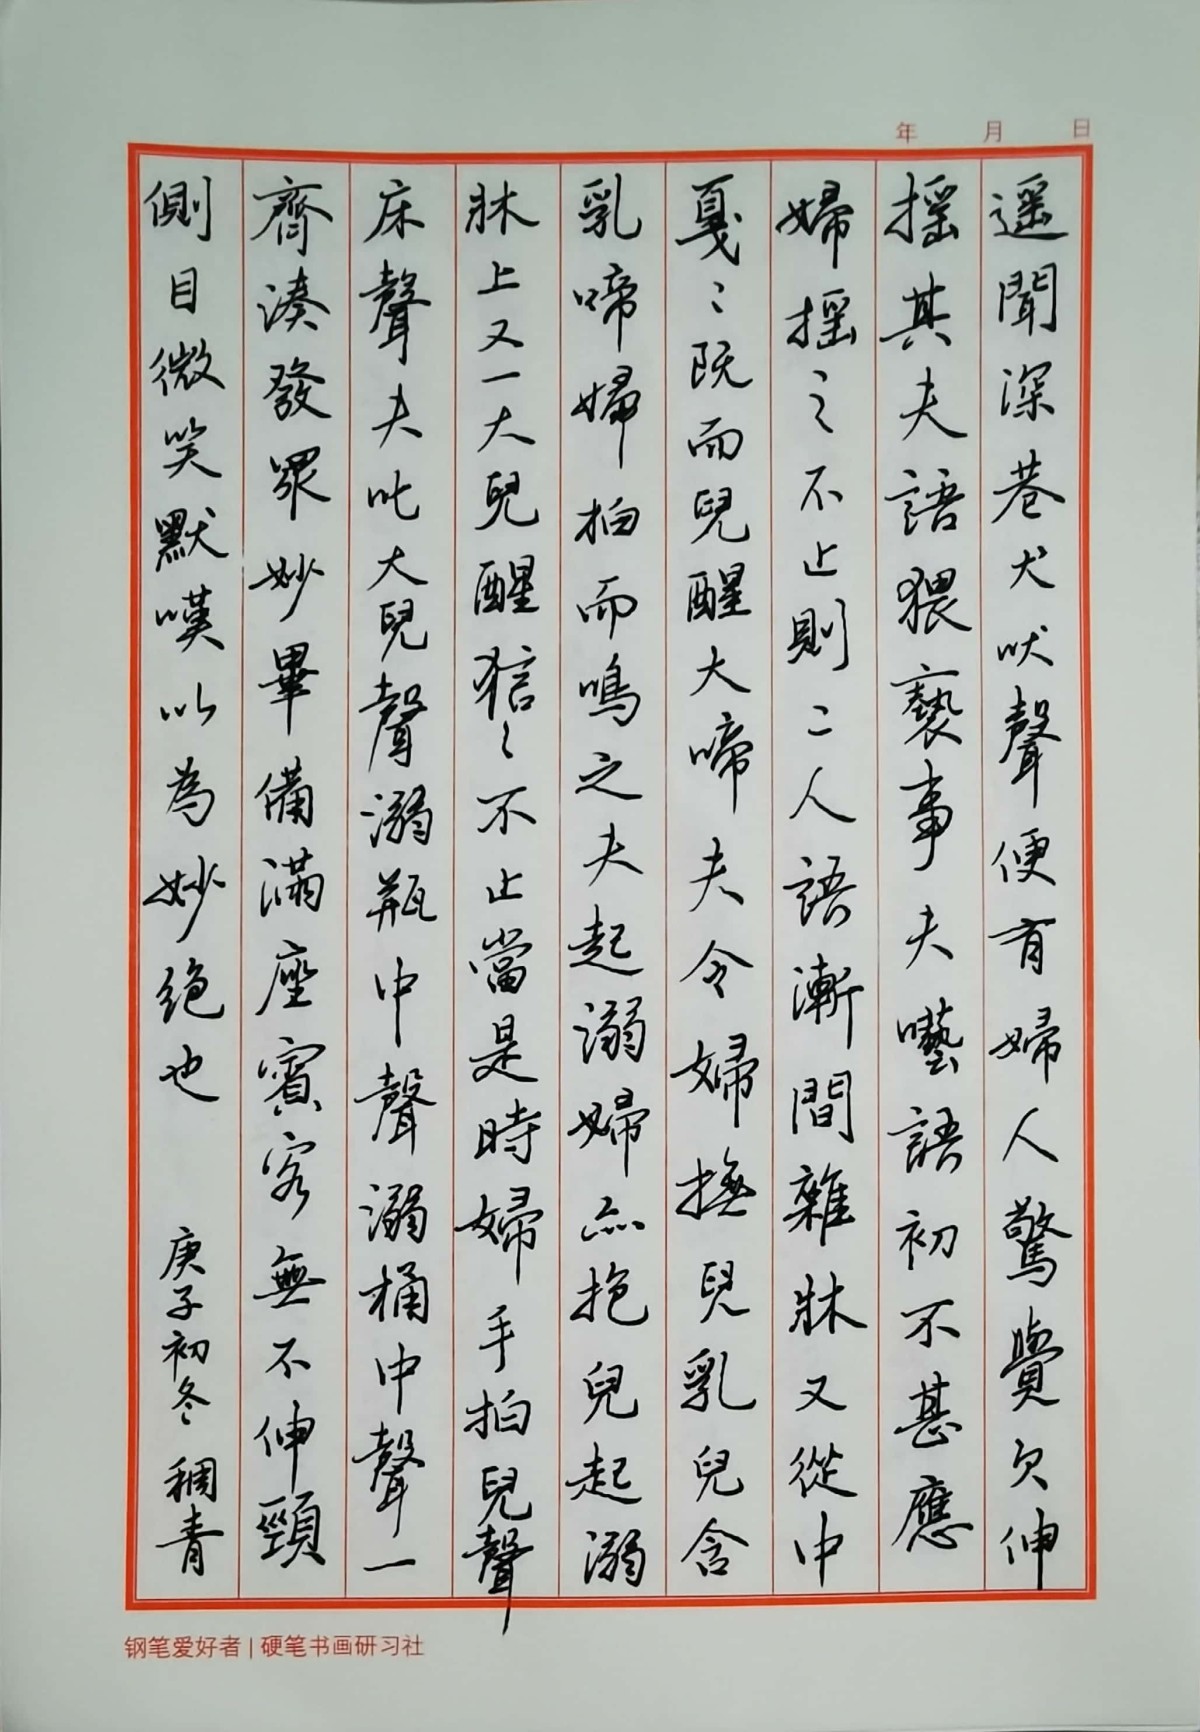 年 月 日
遥聞深巷犬吠聲便有婦人驚覺欠伸
摇其夫語猥褻事夫囈語初不甚應
婦摇之不止則二人語漸間雜牀又從中
戛〻既而兒醒大啼夫令婦撫兒乳兒含
乳啼婦拍而嗚之夫起溺婦亦抱兒起溺
牀上又一大兒醒狺〻不止當是時婦手拍兒聲
床聲夫叱大兒聲溺瓶中聲溺桶中聲一
齊湊發眾妙畢備滿座賓客無不伸頸
側目微笑默嘆以為妙絕也 庚子初冬 稠青
钢笔爱好者 | 硬笔书画研习社